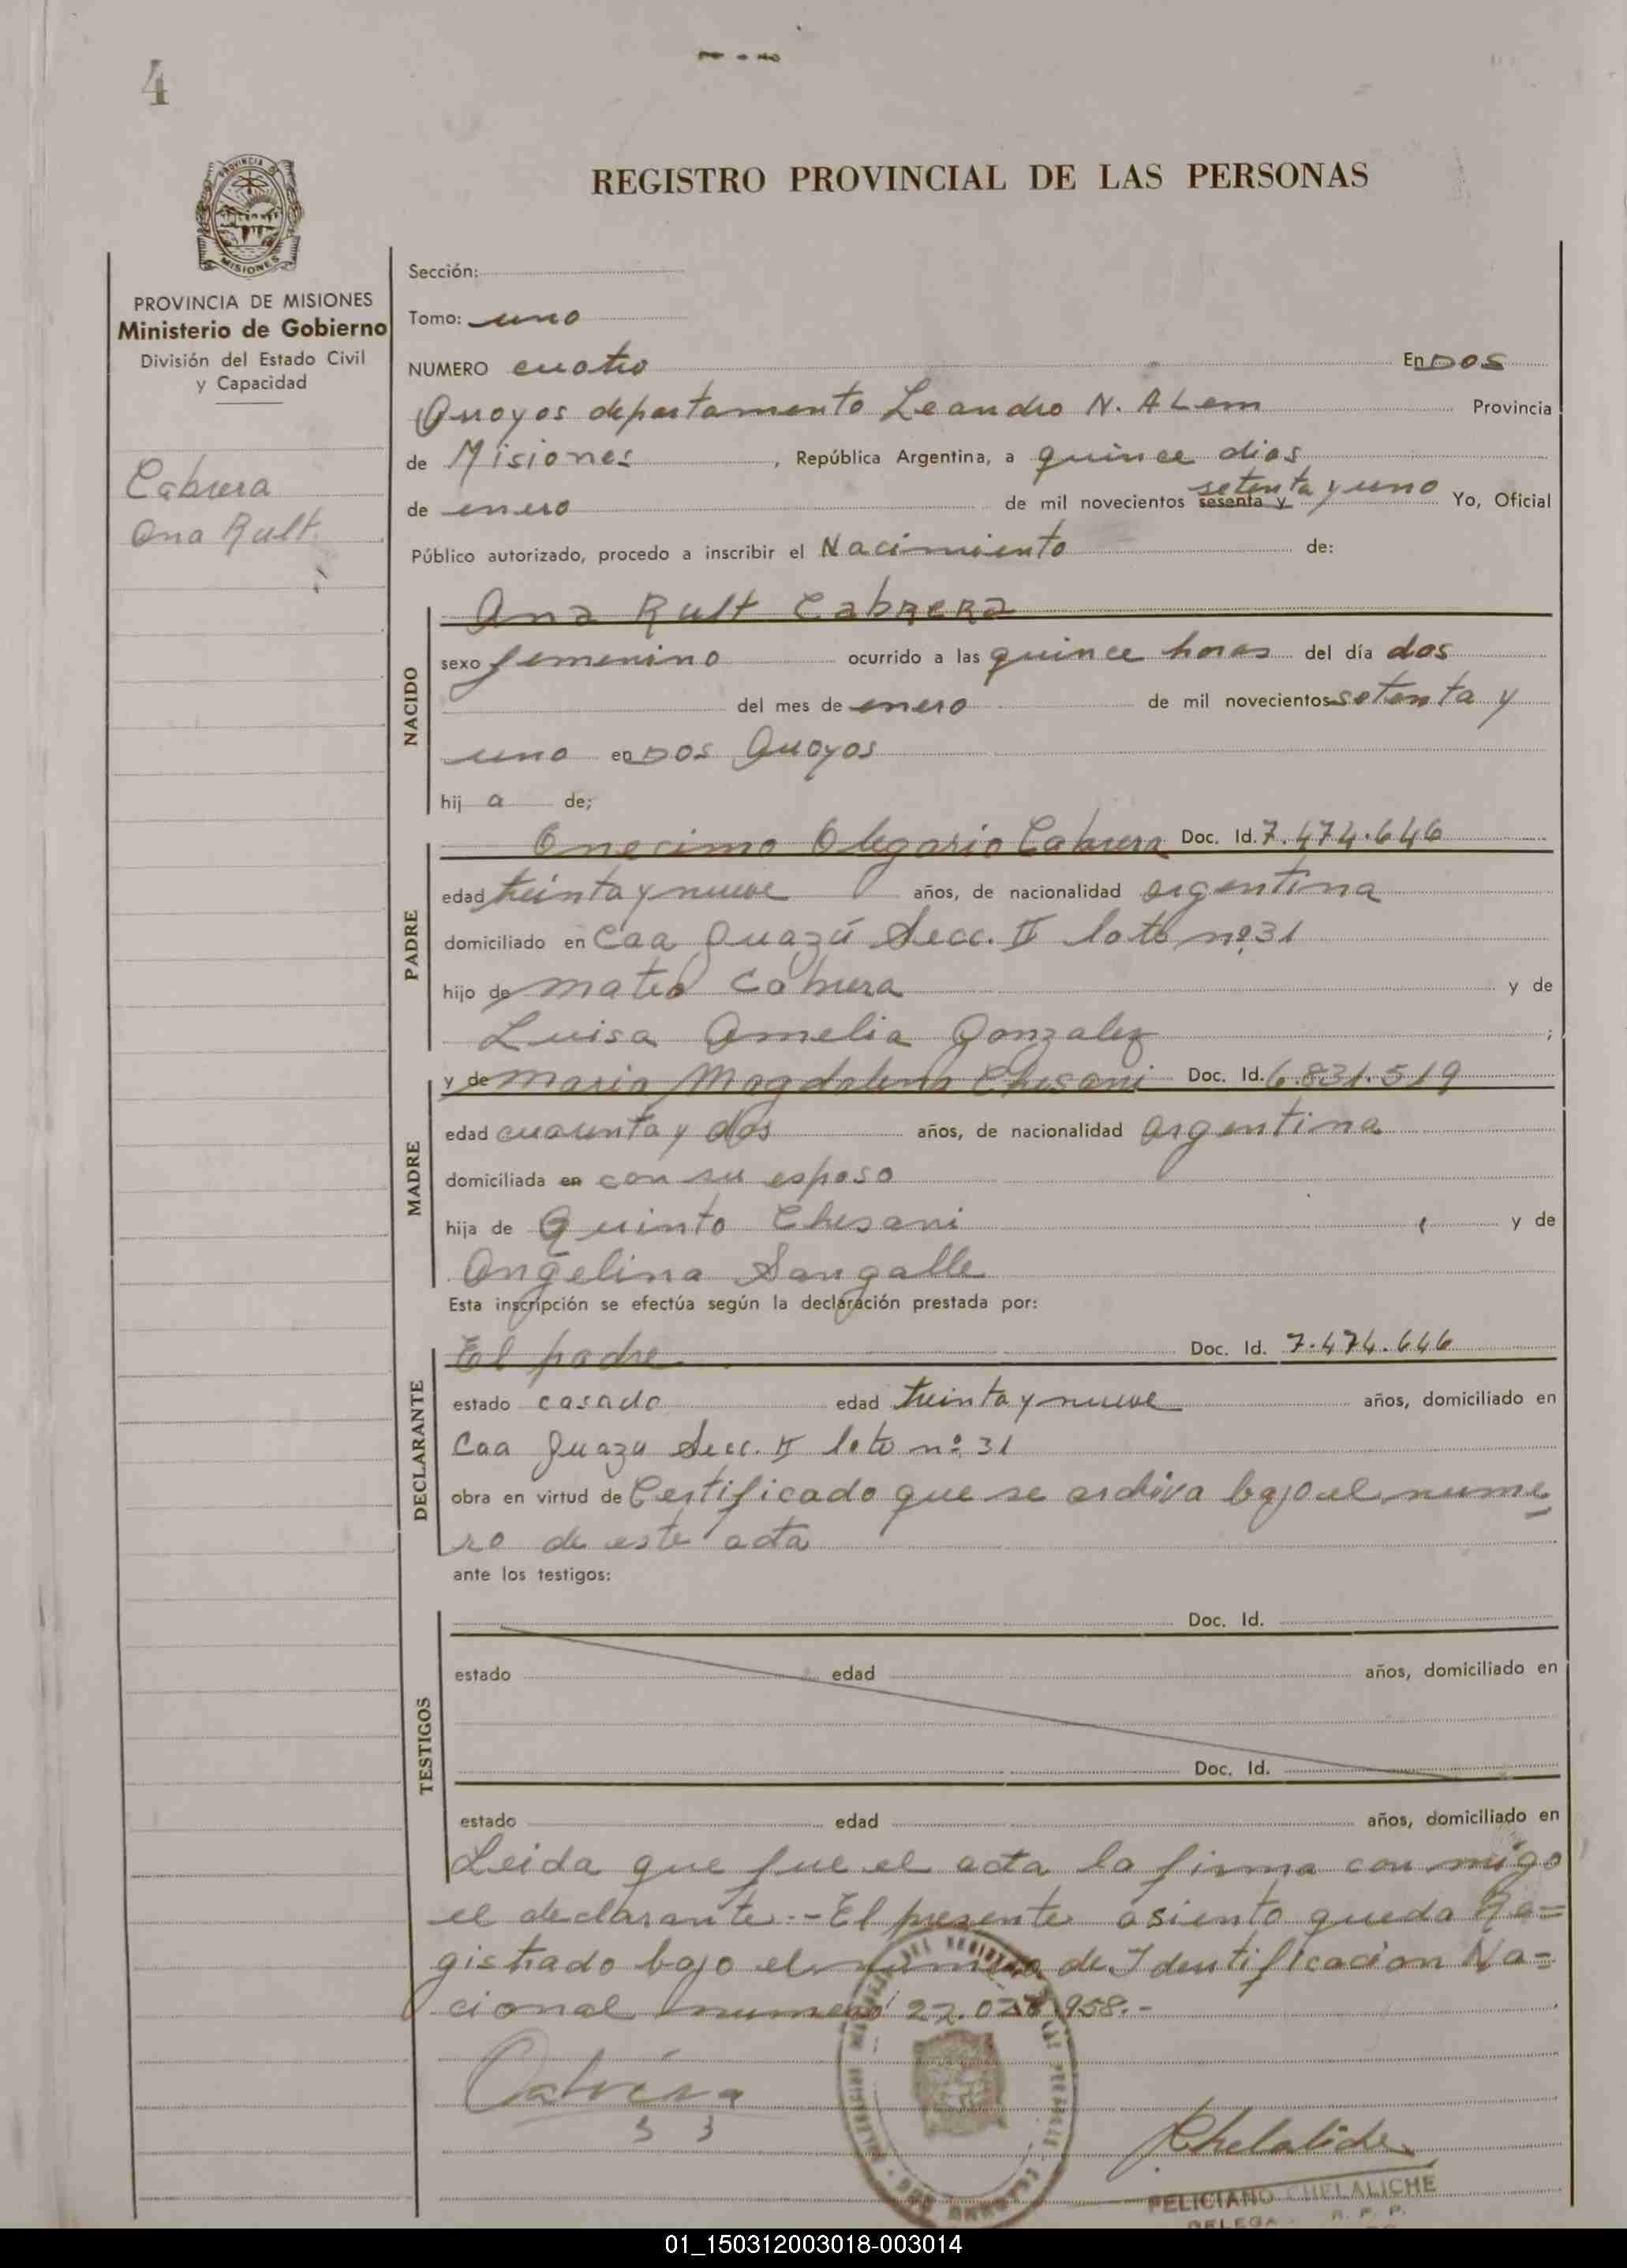 4
REGISTRO PROVINCIAL DE LAS PERSONAS
PROVINCIA
MISIONES
PROVINCIA DE MISIONES
Ministerio de Gobierno
División del Estado Civil
y Capacidad
Cabrera
Ana Rult
Sección:
Tomo: uno
NUMERO cuatro En DOS
Arroyos departamento Leandro N. ALem Provincia
de Misiones, República Argentina, a quince dias
de enero de mil novecientos sesenta y setenta y uno Yo, Oficial
Público autorizado, procedo a inscribir el Nacimiento de:
NACIDO
Ana Rult Cabrera
sexo femenino ocurrido a las quince horas del día dos
del mes de enero de mil novecientos setenta y
uno en DOS Arroyos
hij a de;
PADRE
Onecimo Olegario Cabrera Doc. Id. 7.474.646
edad treinta y nueve años, de nacionalidad argentina
domiciliado en Caa Guazú Secc. II lote nº 31
hijo de mateo Cabrera y de
Luisa Amelia Gonzalez ;
MADRE
y de Maria Magdalena Chesani Doc. Id. 6.831.519
edad cuarenta y dos años, de nacionalidad argentina
domiciliada en con su esposo
hija de Quinto Chesani y de
Angelina Sangalle
Esta inscripción se efectúa según la declaración prestada por:
DECLARANTE
El padre Doc. Id. 7.474.646
estado casado edad treinta y nueve años, domiciliado en
Caa Guazu Secc. II lote nº 31
obra en virtud de Certificado que se archiva bajo el nume
ro de este acta
ante los testigos:
TESTIGOS
Doc. Id.
estado edad años, domiciliado en
Doc. Id.
estado edad años, domiciliado en
Leida que fue el acta la firma con migo
el declarante.- El presente asiento queda Re=
gistrado bajo el numero de Identificacion Na=
cional numero 22.028.958.-
Cabrera
Chelaliche
FELICIANO CHELALICHE
DELEGA R. P. P.
01_150312003018-003014